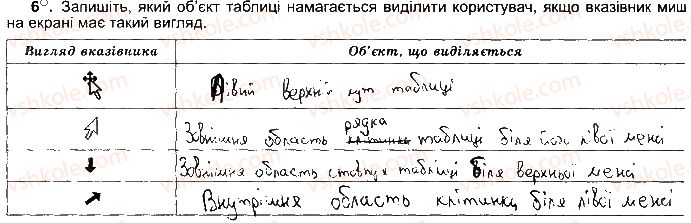 6°. Запишіть, який об'єкт таблиці намагається виділити користувач, якщо вказівник миш
на екрані має такий вигляд.
Вигляд вказівника Об'єкт, що виділяється
Лівий верхній кут таблиці
рядка
Зовнішня область клітинки таблиці біля його лівої межі
Зовнішня область стовпця таблиці біля верхньої межі
Внутрішня область клітинки біля лівої межі